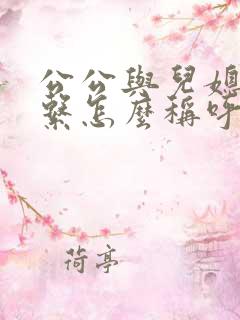 公公與兒媳
繫怎麼稱呼
荷亭